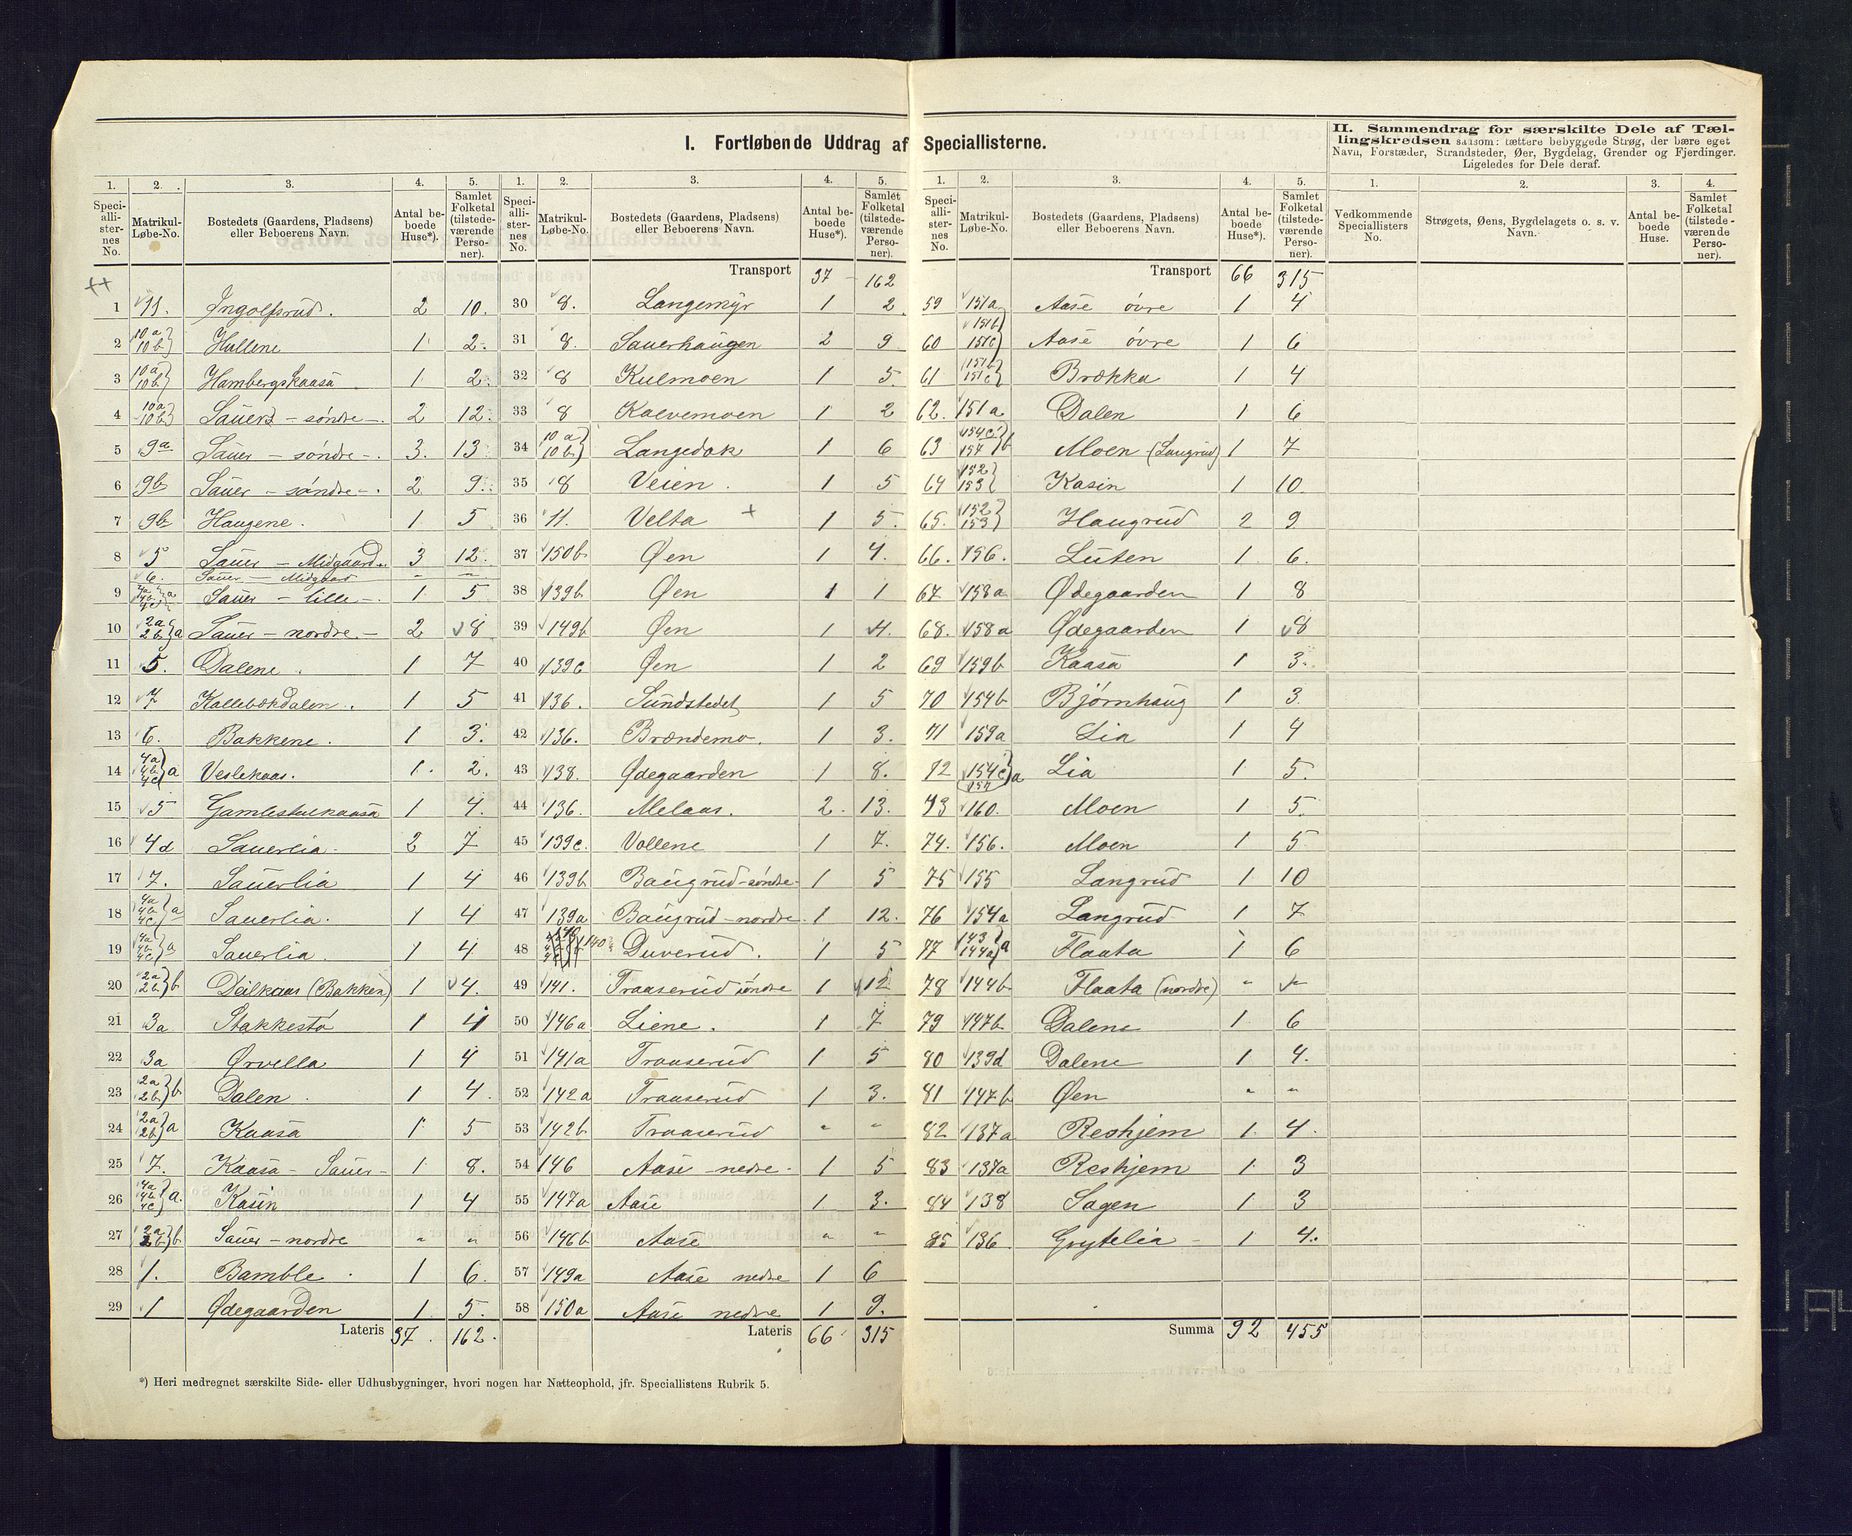 I. Fortløbende Uddrag af Speciallisterne.
II. Sammendrag for særskilte Dele af Tæl-
lingskredsen saasom: tættere bebyggede Strøg, der bære eget
Navn, Forstæder, Strandsteder, Øer, Bygdelag, Grender og Fjerdinger.
Ligeledes for Dele deraf.
1. 2. 3. 4. 5.
Speciallisternes No. Matrikul-Løbe-No. Bostedets (Gaardens, Pladsens) eller Beboerens Navn. Antal beboede Huse*). Samlet Folketal (tilstedeværende Personer).
1 11. Ingolfsrud. 2 10.
2 10a 10b} Hullene 1 2.
3 10a 10b} Hambergskaasa 1 2.
4 10a 10b} Sauer - søndre - 2 12.
5 9a Sauer - søndre - 3. 13
6 9b Sauer - søndre - 2 9.
7 9b Haugene. 1 5
8 5 Sauer - Midgaard 3 12.
6. Sauer - Midgaard - -
9 4a 4b 4c}a Sauer - lille - 1 5
10 2a 2b}a Sauer - nordre - 2 8
11 5. Dalene. 1 7
12 7 Kallebækdalen. 1 5
13 6. Bakkene. 1 3.
14 4a 4b 4c}a Veslekaas. 1. 2.
15 5 Gamlestulkaasa 1 4.
16 4d Sauerlia. 2 7
17 7. Sauerlia 1 4
18 4a 4b 4c}a Sauerlia. 1 4
19 4a 4b 4c}a Sauerlia. 1 4
20 2a 2b}b Deilkaas (Bakken) 1 4.
21 3a Stakkestø 1 4
22 3a Ørvella 1 4
23 2a 2b}b Dalen. 1 4.
24 2a 2b}a Kaasa 1 5
25 7. Kaasa - Sauer - 1 8.
26 4a 4b 4c}a. Kasin 1 4
27 2a 2b}b Sauer - nordre " "
28 1. Bamble. 1 6.
29 1 Ødegaarden 1. 5.
Lateris 37. 162.
1. 2. 3. 4. 5.
Speciallisternes No. Matrikul-Løbe-No. Bostedets (Gaardens, Pladsens) eller Beboerens Navn. Antal beboede Huse*). Samlet Folketal (tilstedeværende Personer).
Transport 37 - 162
30 8. Langemyr 1 2.
31 8. Sauerhaugen 2 9
32 8 Kulmoen 1 5.
33 8 Kolvemoen 1 2
34 10a 10b} Langedok 1 6
35 8 Veien. 1 5
36 11. Velta + 1 5.
37 150b Øen 1 4.
38 139b Øen 1 1
39 149b Øen 1 4.
40 139c Øen 1 2
41 136. Sundstedet 1 5
42 136. Brændemo. 1 3.
43 138. Ødegaarden 1 8.
44 136. Melaas. 2. 13.
45 139c. Vollene 1 7.
46 139b Baugrud-søndre- 1 5
47 139a Baugrud-nordre. 1 12.
48 140 Duverud. 1 5
49 141. Traaserud søndre 1 12
50 146a Liene. 1 7
51 141a Traaserud 1 5
52 142a Traaserud 1 3.
53 142b Traaserud " "
54 146 Aase - nedre - 1 5
55 147a Aase 1 3.
56 146b Aase " "
57 149a Aase nedre 1 6
58 150a Aase nedre 1 9.
Lateris 66. 315
1. 2. 3. 4. 5.
Speciallisternes No. Matrikul-Løbe-No. Bostedets (Gaardens, Pladsens) eller Beboerens Navn. Antal beboede Huse*). Samlet Folketal (tilstedeværende Personer).
Transport 66 315
59 151a Aase øvre 1 4
60 151b 151c} Aase øvre 1 6
61 151b 151c} Brækka 1 4
62. 151a Dalen 1 6
63 154c 157}b Moen (Langrud) 1 7
64 152 153} Kasin 1 10.
65. 152 153} Haugrud 2 9
66. 156. Luten 1 6.
67 158a Ødegaarden 1 8
68. 158a Ødegaarden 1 8
69 159b Kaasa 1 3.
70 154b Bjørnhaug 1 3.
71 159a Lia 1 4
72 154c 157}a Lia 1 5.
73 160. Moen 1 5.
74. 156. Moen 1 5
75 155 Langrud 1 10
76 154a Langrud 1 7
77 143 144a}a Flaata 1 6
78 144b Flaata (nordre) " "
79 147b Dalene 1 6
80 139d Dalene 1 4.
81 147b Øen " "
82 137a Reshjem 1. 4.
83 137a Reshjem 1 3
84 138 Sagen 1 3
85 136 Grytelia - 1 4.
Summa 92 455
1. 2. 3. 4.
Vedkommende Speciallisters No. Strøgets, Øens, Bygdelagets o. s. v. Navn. Antal beboede Huse. Samlet Folketal (tilstedeværende Personer).
*) Heri medregnet særskilte Side- eller Udhusbygninger, hvori nogen har Natteophold, jfr. Speciallistens Rubrik 5.